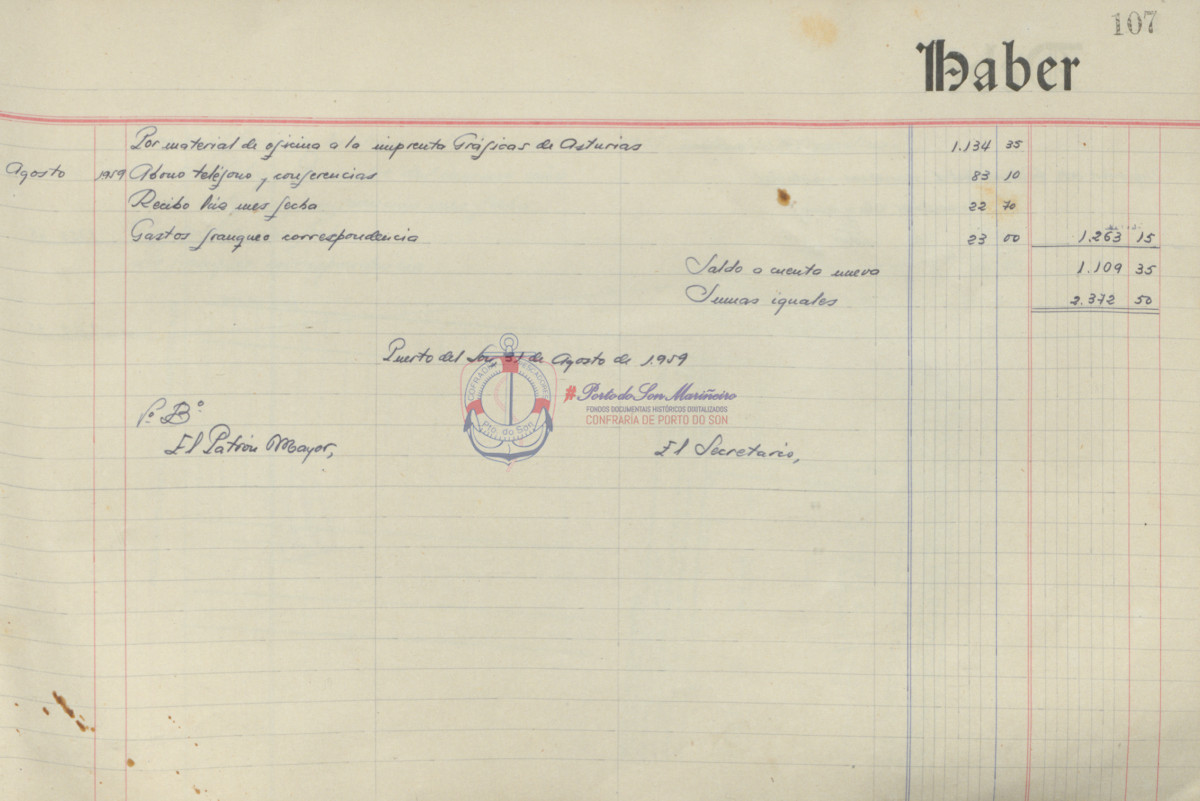 107
Haber
Por material de oficina a la imprenta Gráficas de Asturias 1.134 35
Agosto 1959 Abono teléfono y conferencias 83 10
Recibo mes fecha 22 70
Gastos franqueo correspondencia 23 00 1.263 15
Saldo a cuenta nueva 1.109 35
Sumas iguales 2.372 50
Puerto del Son, 31 de Agosto de 1.959
Vº Bº
El Patrón Mayor,
El Secretario,
COFRADIA PESCADORES
Pto. do Son
#Porto do Son Mariñeiro
FONDOS DOCUMENTAIS HISTÓRICOS DIXITALIZADOS
CONFRARÍA DE PORTO DO SON